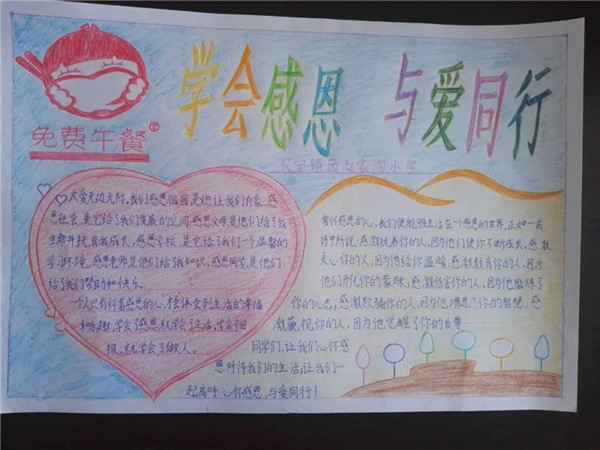 学会感恩 与爱同行
免费午餐®
大安镇西赵家沟小学
大爱无边无际,我们感恩祖国,是她让我们自豪,感
恩社会,是它给了我们发展的空间,感恩父母,是他们给了我
生命并抚育我成长,感恩学校,是它给了我们一个温馨的
学习环境,感恩老师,是他们给了我知识,感恩同学,是他们
给了我们帮助和快乐。
一个人只有怀着感恩的心,才会体会到生活的幸福
和乐趣,学会了感恩,就学会了生活,学会了回
报,就学会了做人。
常怀感恩的心,我们便能够生活在一个感恩的世界,正如一首
诗中所说:感激抚养你的人,因为他们使你不断成长,感激
关心你的人,因为他给你温暖,感激教育你的人,因为
他们开化你的蒙昧,感激伤害你的人,因为他磨炼了
你的心志,感激欺骗你的人,因为他增进了你的智慧,感
激藐视你的人,因为他觉醒了你的自尊……
同学们,让我们心怀感
恩,对待我们的生活,让我们一
起高呼:心怀感恩,与爱同行!